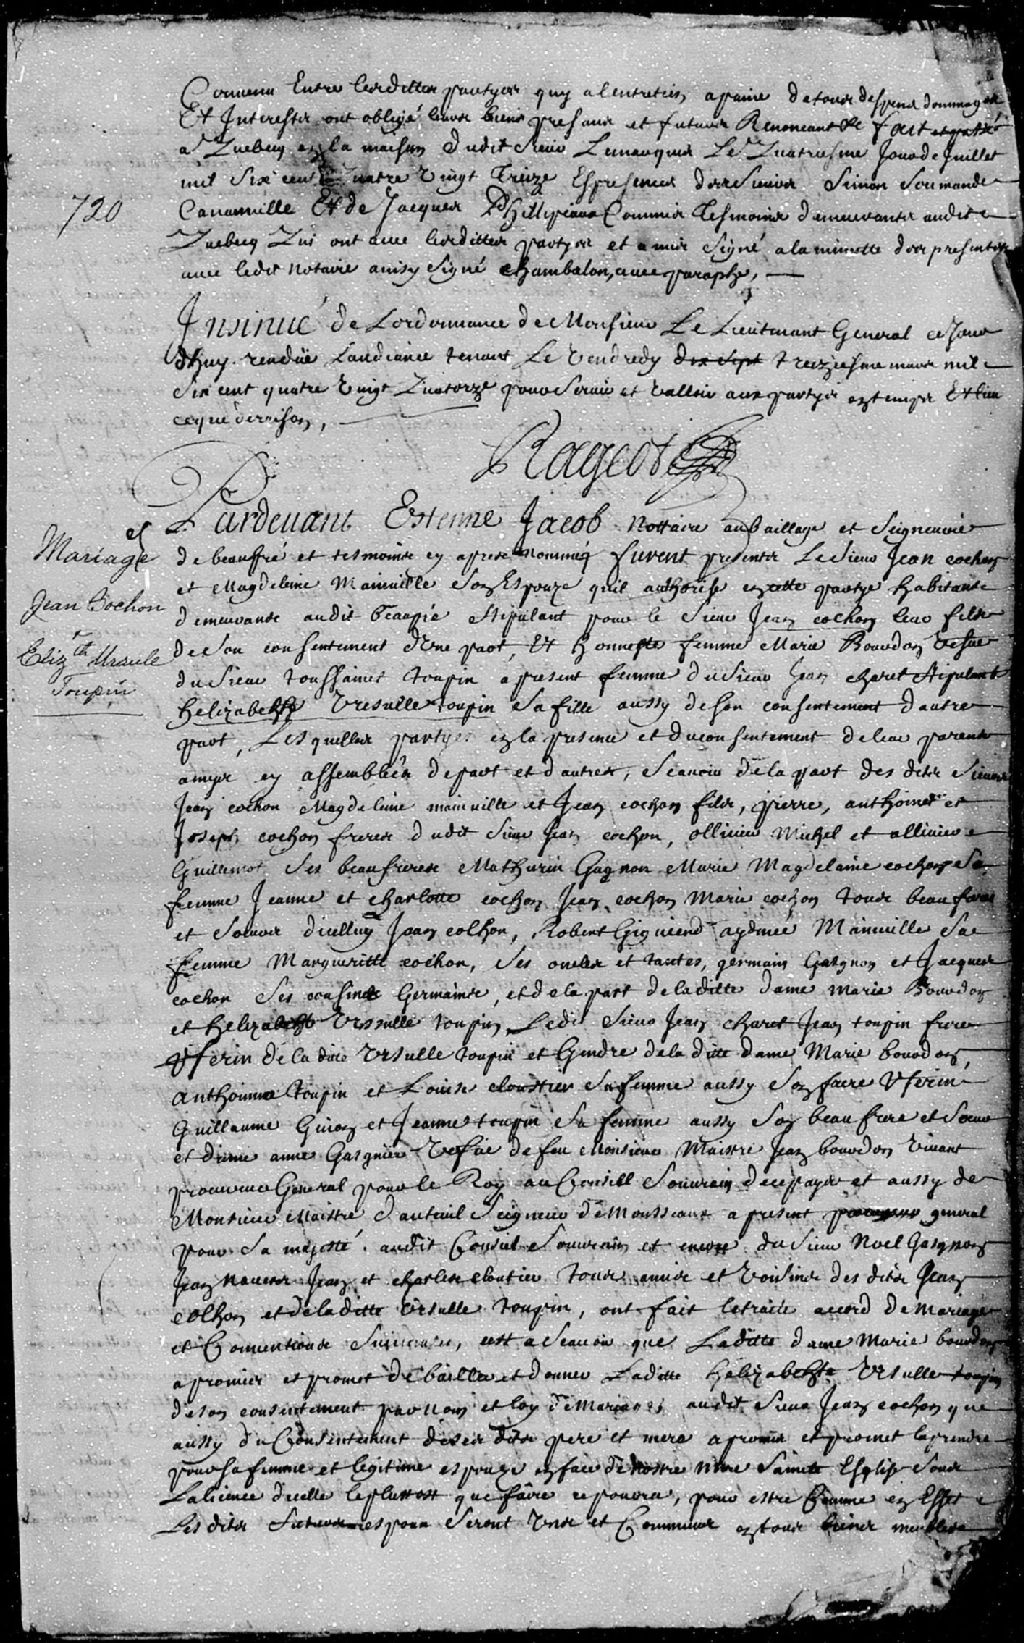 Convenu Entre lesdittes partyes quy a lentretien a paine de tous despens dommages
Et Interestz ont obligé leurs biens presans et futurs Renoncant &c fait et passé
a Quebecq en la maison dudit Sieur Lemarquis Le Quatriesme Jour de Juillet
mil Six cent quatre Vingt Treize Es presence des Sieurs Simon Soumande
720
Cananville Et de Jacques Phillipiaux Commis tesmoins demeurants audit
Quebecq Qui ont avec lesdittes partyes et amis Signé a la minutte des presentes
avec ledit notaire ainsy Signé Chambalon, avec paraphe,
Insinué de Lordonnance de Monsieur Le Lieutenant General ce Jour
dhuy rendüe Laudiance tenant Le Vendredy dix sept treiziesme mars mil
Six cent quatre Vingt Quatorze pour Servir et valloir aux partyes en temps Et lieu
ce que de raison,
Rageot
Pardevant Estienne Jacob Nottaire au baillage et Seigneurie
Mariage et
de beaupré et tesmoins cy apres Nommés furent presents Le Sieur Jean cochon
et Magdelaine Mainville Son Espouze quil authorise en cette partye habitants
Jean Cochon
demeurants audit beaupré Stipulant pour le Sieur Jean cochon leur fils
Eliz.th Ursule
de Son consentement d'Une part, Et honneste femme Marie Bourdon Vefve
Toupin
du Sieur toussaint toupin a present femme du Sieur Jean charet Stipulant
helizabethe Ursulle toupin Sa fille aussy de Son consentement d'autre
part, Lesquelles partyes en la presence et du consentement de leur parents
amys cy assemblées de part et d'autres, Scavoir de la part des dits Sieurs
Jean cochon Magdelaine mainville et Jean cochon fils, pierre, anthoine et
Joseph cochon freres dudit Sieur Jean cochon, ollivier Michel et ollivier
Guillemot Ses beaufreres Mathurin Gagnon Marie Magdelaine cochon Sa
femme Jeanne et charlotte cochon Jean cochon Marie cochon tous beaufreres
et Soeurs dicelluy Jean cochon, Robert Giguiend aydmée Mainville Sa
femme Margueritte cochon, Ses oncles et tantes, germain Gasgnon et Jacques
cochon Ses cousins Germains, et de la part de laditte dame Marie Bourdon
et helizabethe Ursulle toupin Ledit Sieur Jean charet Jean toupin frere
Uterin de la dite Ursulle toupin et Gendre de la ditte dame Marie bourdon,
anthoinne toupin et Louise cloustier Sa femme aussy Son frere Uterin
Guillaume Guion et Jeanne toupin Sa femme aussy Son beau frere et Soeur
et dame anne Gasgnier Vefve de feu Monsieur Maistre Jean bourdon Vivant
procureur General pour le Roy au Conseil Souverain de ce pays et aussy de
Monsieur Maistre dauteuil Seigneur de Monsseaux a present procureur general
pour Sa majesté audit Conseil Souverain et encore du Sieur Noel Gasgnon
Jean Jean et charles cloutier tous amis et Voisins des dits Jean
colhon et de la ditte Ursulle toupin, ont fait le traité accord de Mariage
et Conventions Suivantes, cest a Scavoir que Laditte dame Marie bourdon
a promis et promet de bailler et donner Laditte helizabethe Ursulle toupin
de Son consentement par Nom et loy de Mariage, audit Sieur Jean cochon que
aussy du Consentement de Ses dits pere et mere a promis et promet la prendre
pour Sa femme et legitime espouze en face de nostre mere Sainte Esglise Sous
La licence dicelle le plustost que faire ce poura, pour estre Comme en Effet
Les dits futurs espoux Seront Uns et Communs en tous biens meubles